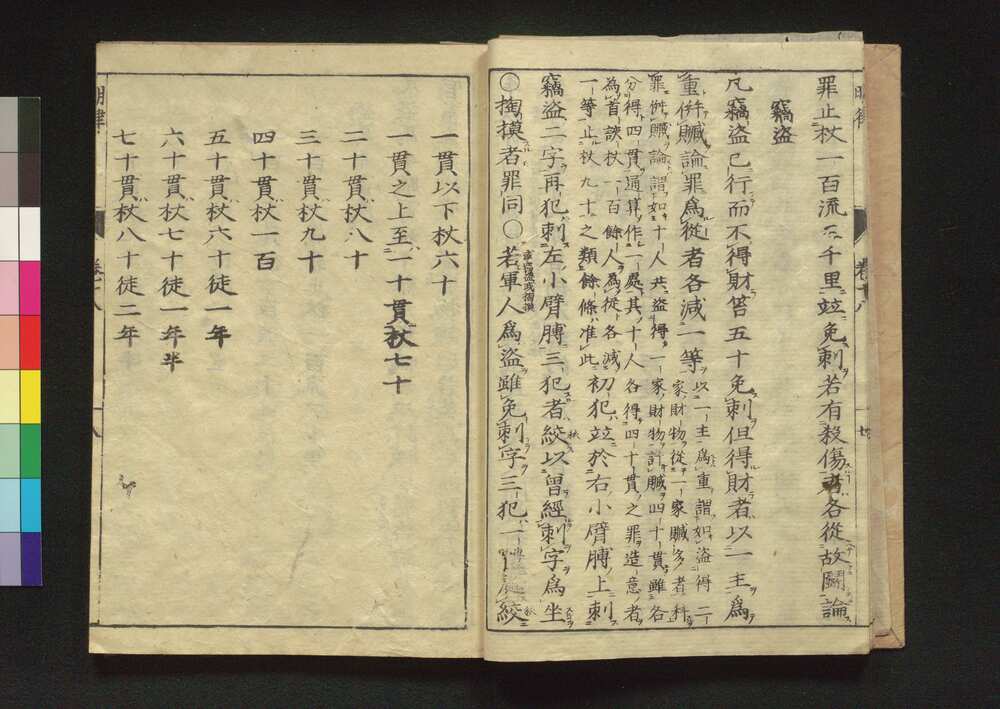 罪止杖一百流三千里竝免刺若有殺傷者各從故鬪論
竊盜
凡竊盜已行而不得財笞五十免刺但得財者以一主爲
重倂贓論罪爲從者各減一等以一主爲重謂如盜得二
家財物從一家贓多者科
罪倂贓論謂如十人共盜得一家財物計贓四十貫雖各
分得四貫通算作一處其十人各得四十貫之罪造意者
爲首該杖一百餘人爲從各減
一等止杖九十之類餘條准此初犯竝於右小臂膊上刺
竊盜二字再犯刺左小臂膊三犯者絞以曾經刺字爲坐
○掏摸者罪同○若軍人爲盜雖免刺字三犯一體絞
一貫以下杖六十
一貫之上至一十貫杖七十
二十貫杖八十
三十貫杖九十
四十貫杖一百
五十貫杖六十徒一年
六十貫杖七十徒一年半
七十貫杖八十徒二年
明律